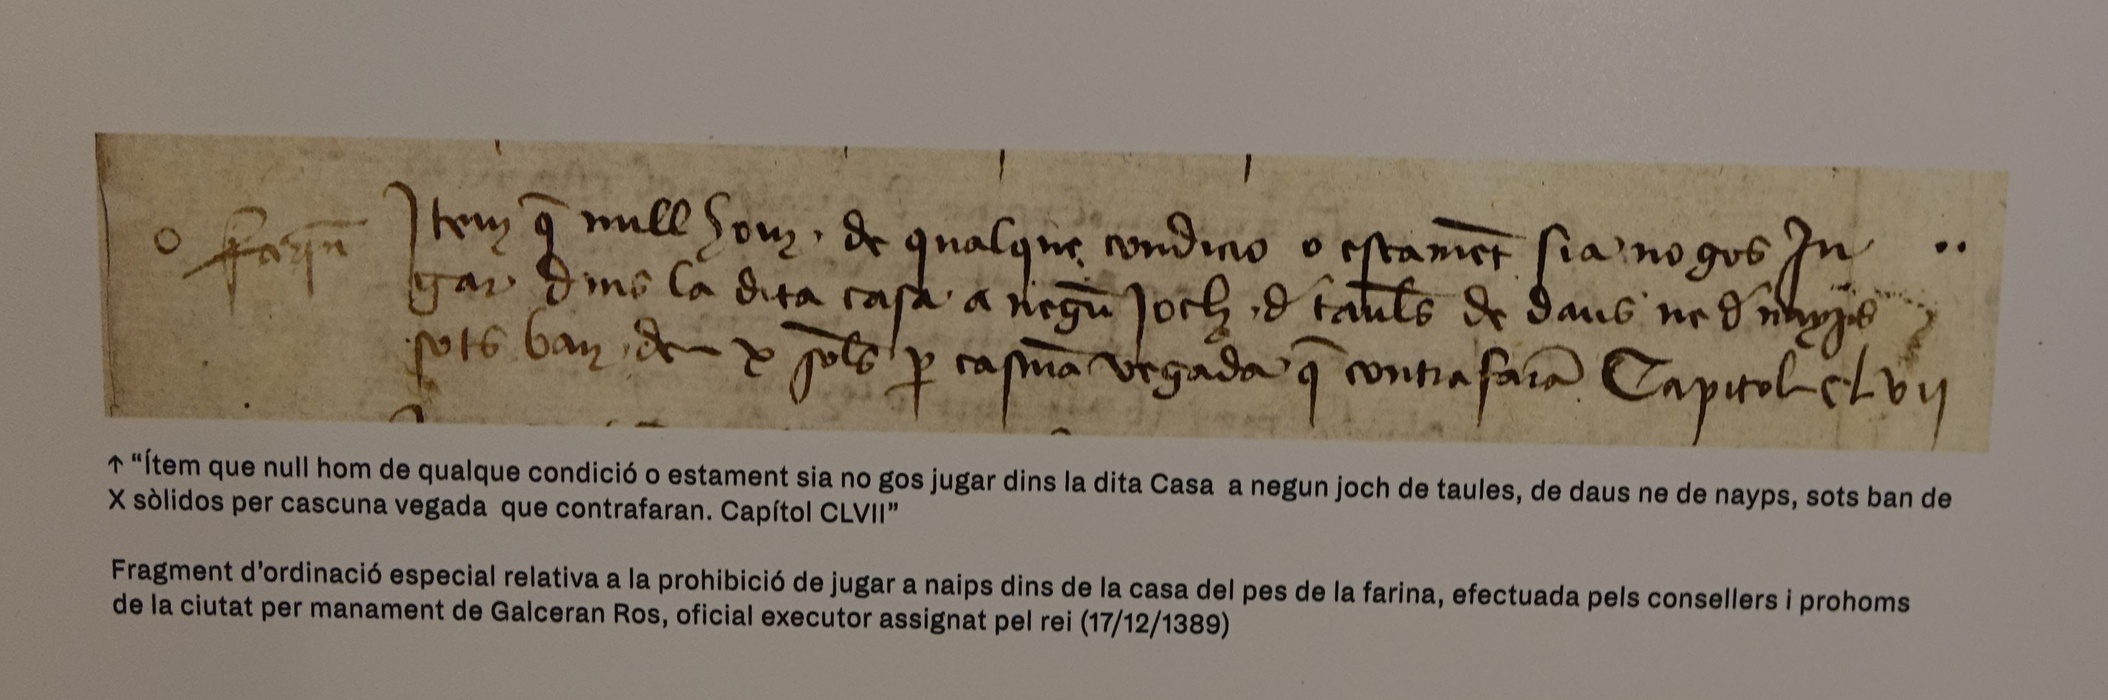 o farin
Item q̄ null hom de qualque condicio o estamēt sia no gos Ju
gar dins la dita casa a negū Joch de taules de daus ne d nayps
sots ban de x sols p casc̄una vegada q̄ contrafarā Capitol CLvij
↑ “Ítem que null hom de qualque condició o estament sia no gos jugar dins la dita Casa a negun joch de taules, de daus ne de nayps, sots ban de
X sòlidos per cascuna vegada que contrafaran. Capítol CLVII”
Fragment d’ordinació especial relativa a la prohibició de jugar a naips dins de la casa del pes de la farina, efectuada pels consellers i prohoms
de la ciutat per manament de Galceran Ros, oficial executor assignat pel rei (17/12/1389)